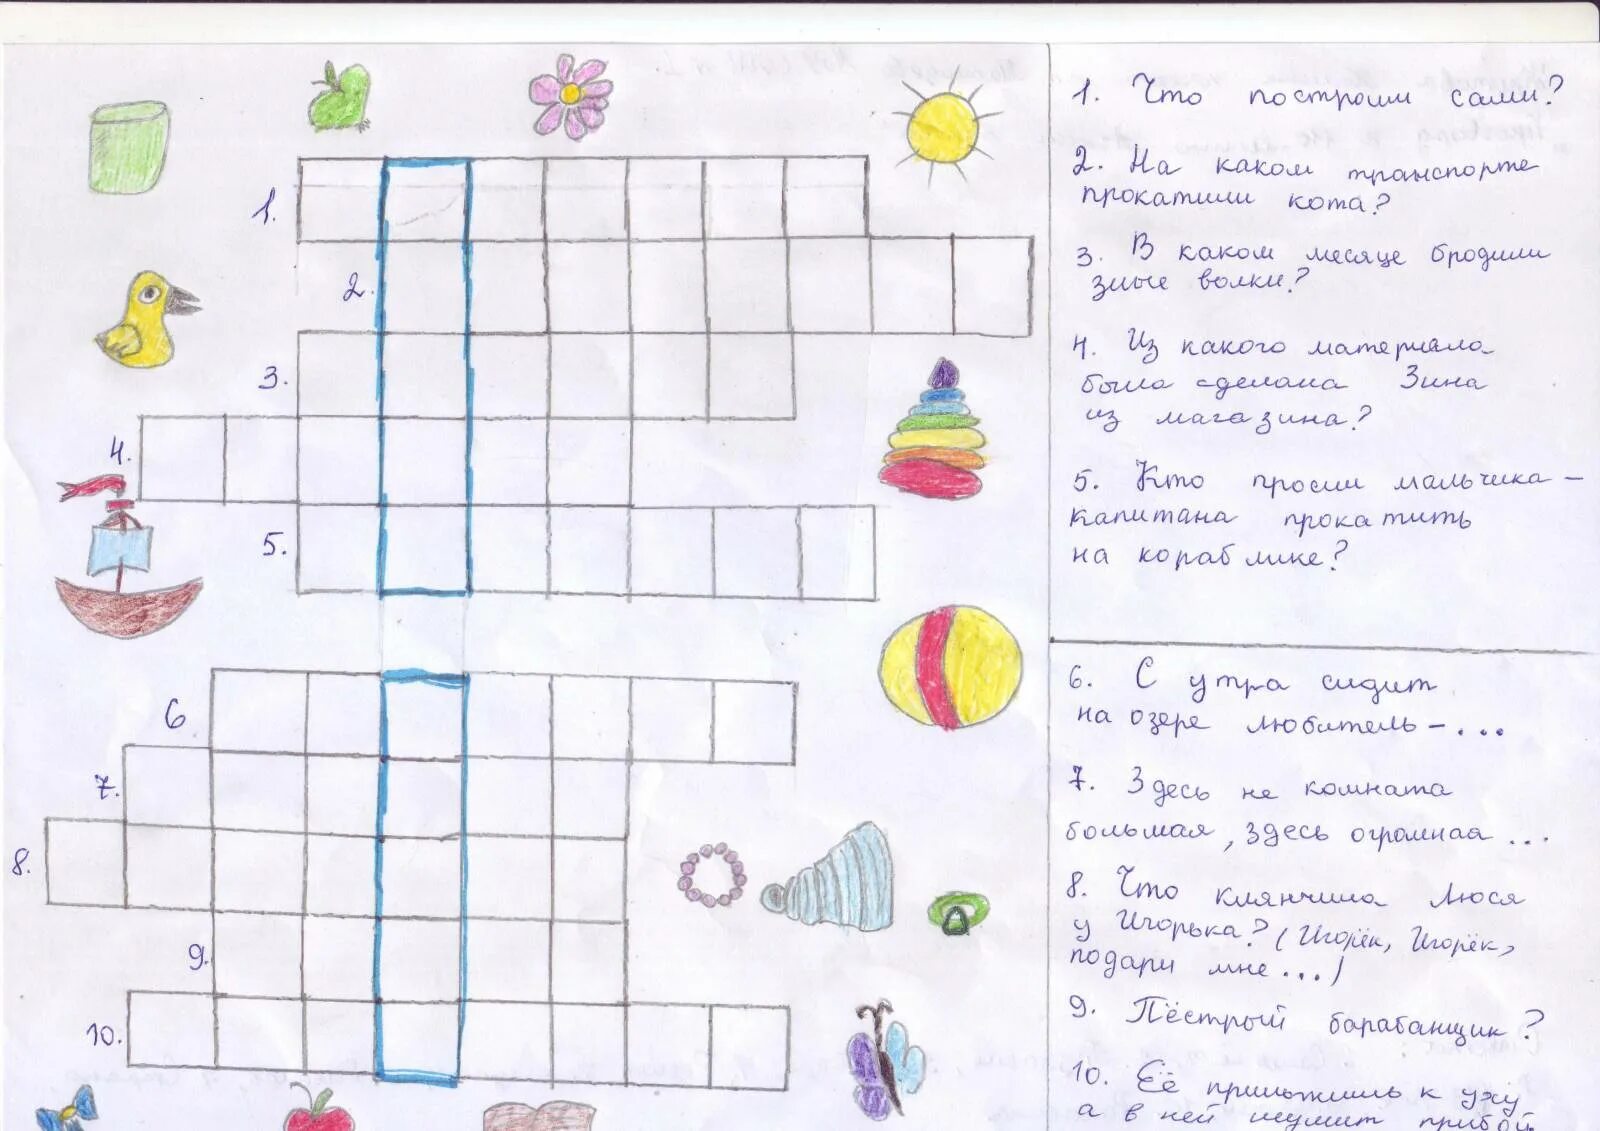 1. Что построим сами?
2. На каком транспорте
прокатили кота?
3. В каком месяце бродили
злые волки?
4. Из какого материала
была сделана Зина
из магазина?
5. Кто просил мальчика –
капитана прокатить
на кораблике?
6. С утра сидит
на озере любитель – ...
7. Здесь не комната
большая, здесь огромная ...
8. Что клянчила Люся
у Игорька? (Игорёк, Игорёк,
подари мне ...)
9. Пёстрый барабанщик?
10. Её приложишь к уху
а в ней шумит прибой
1.
2.
3.
4.
5.
6
7.
8.
9.
10.